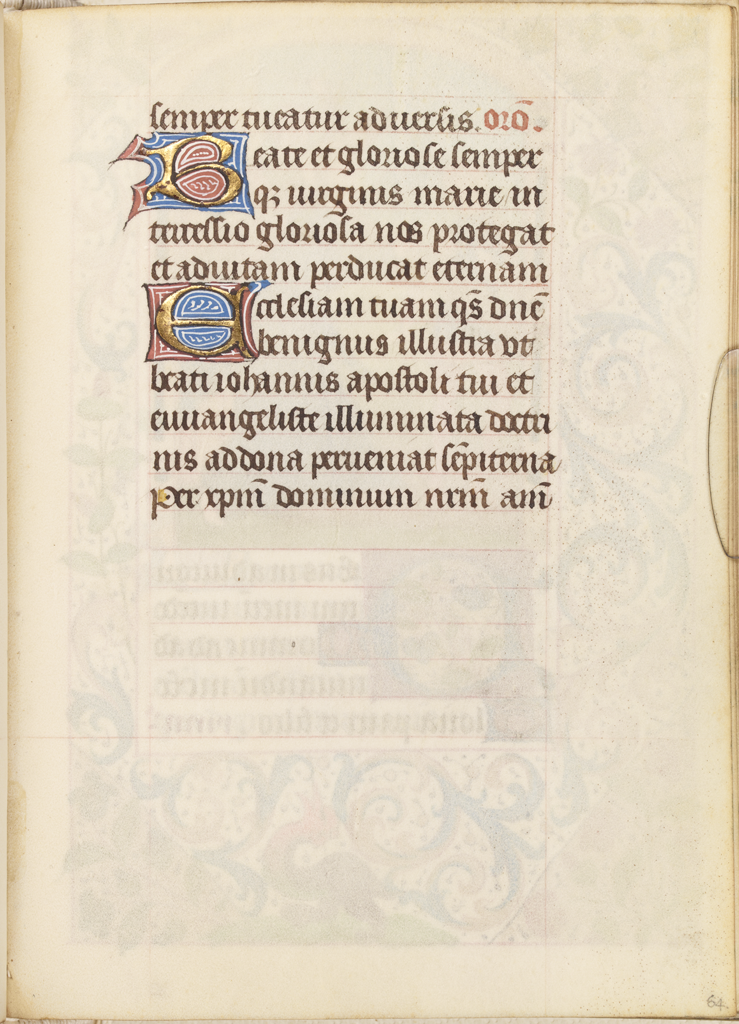 semper tueatur aduersis. orō.
Beate et gloriose semper
qꝫ uirginis marie in
tercessio gloriosa nos protegat
et aduitam perducat eternam
Ecclesiam tuam q̄s dn̄e
benignus illustra vt
beati iohannis apostoli tui et
euuangeliste illuminata doctri
nis addona perueniat sēpiterna
Per xp̄m dominum nr̄m am̄
64